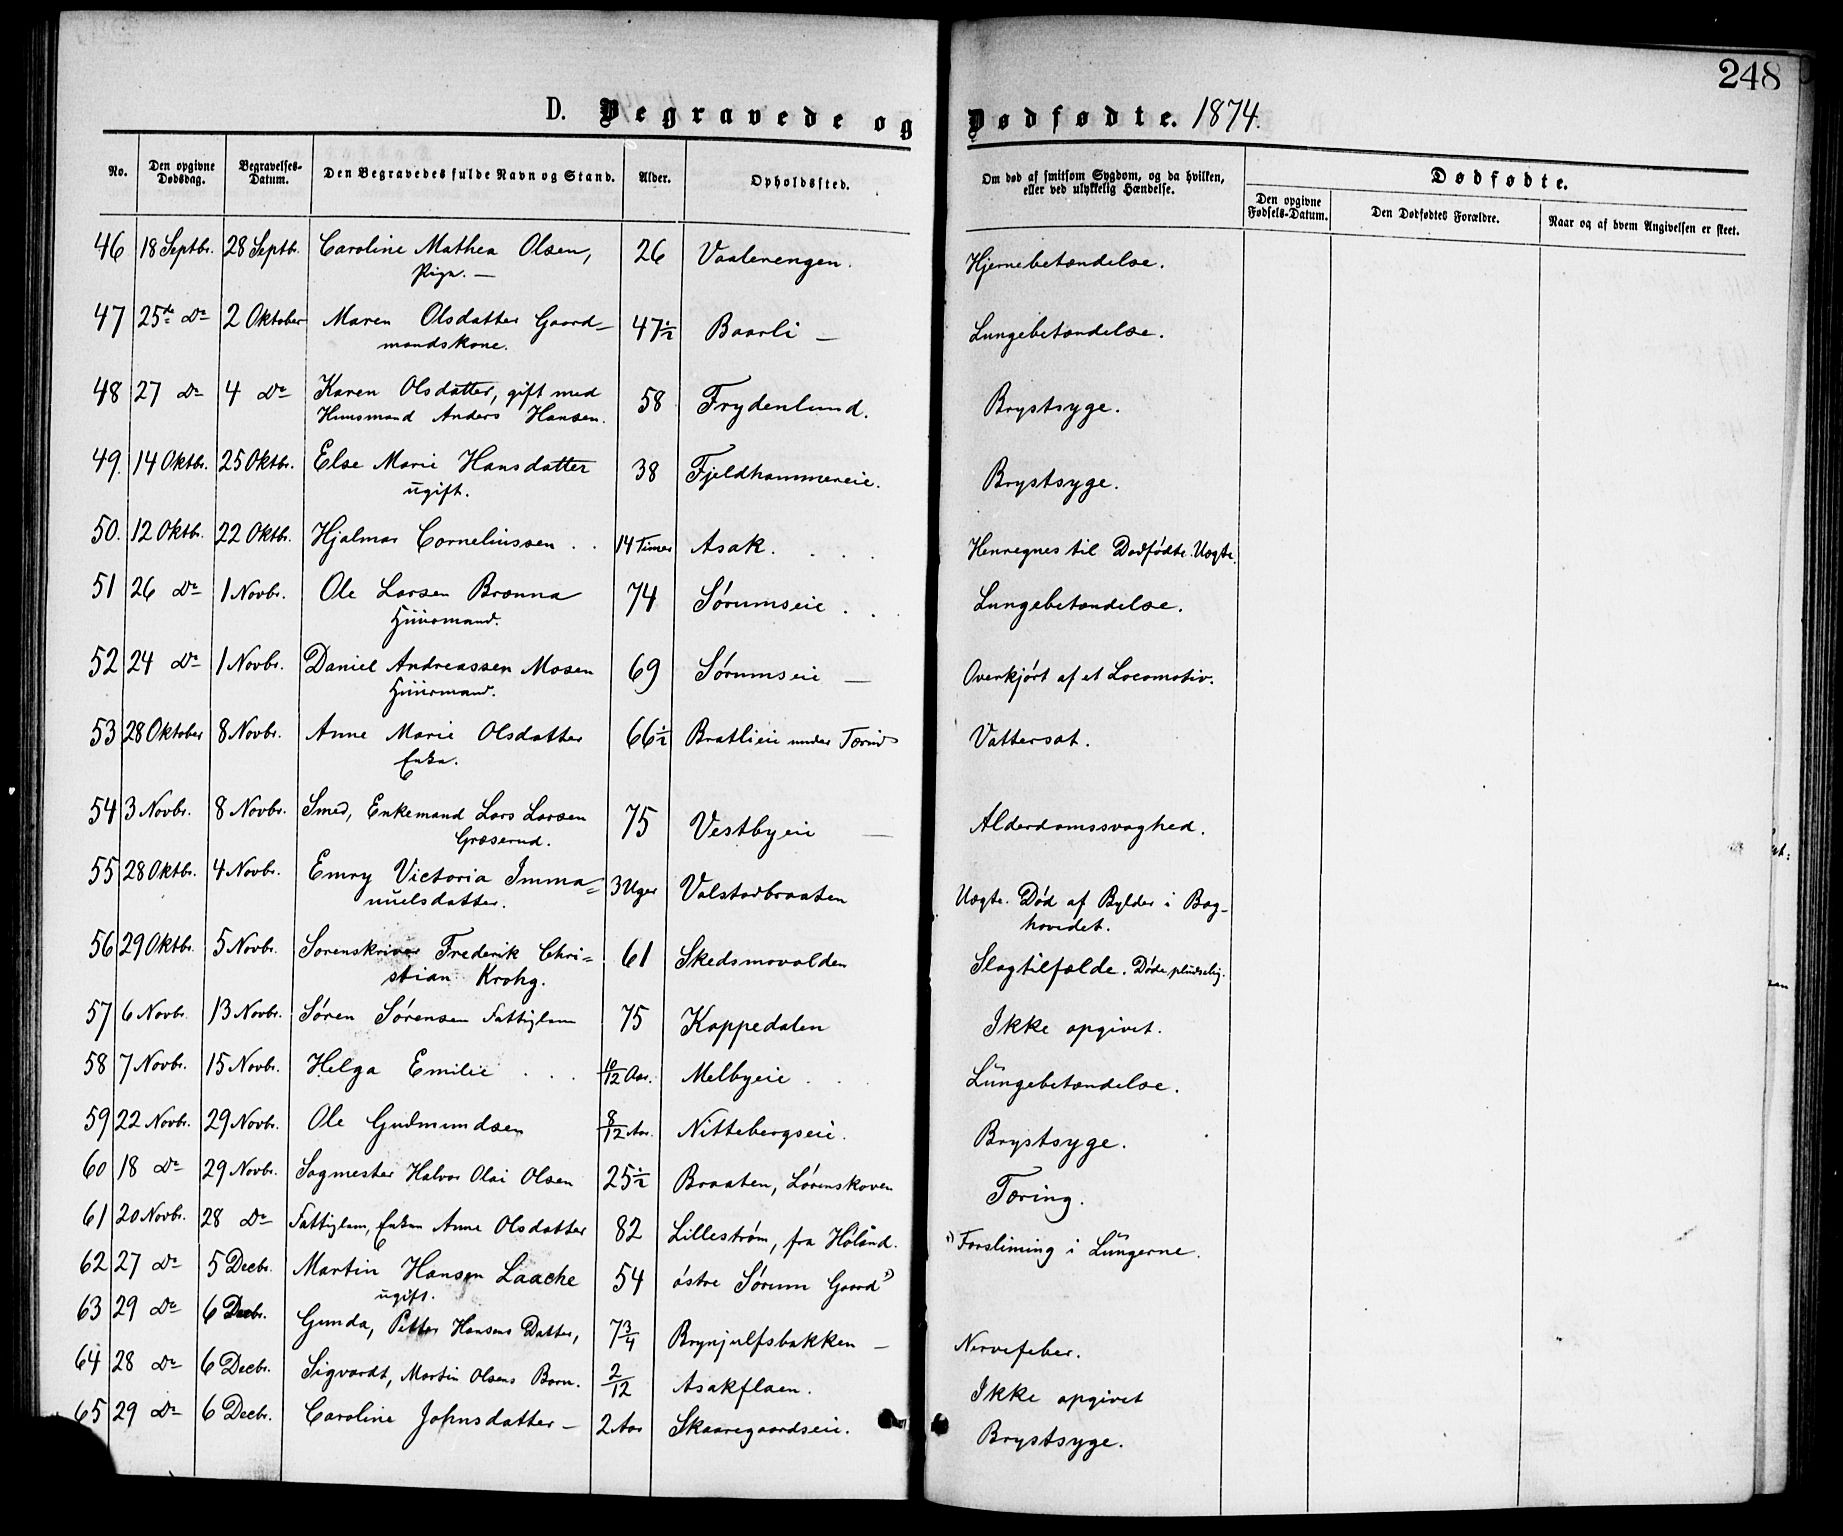 248
D. Begravede og Dødfødte. 1874.
No. Den opgivne Dødsdag. Begravelses-Datum. Den Begravedes fulde Navn og Stand. Alder. Opholdssted. Om død af smitsom Sygdom, og da hvilken, eller ved ulykkelig Hændelse. Dødfødte.
Den opgivne Fødsels-Datum. Den Dødfødtes Forældre. Naar og af hvem Angivelsen er skeet.
46 18 Septbr. 28 Septbr. Caroline Mathea Olsen, 26 Vaalerengen. Hjernebetændelse.
Pige. —
47 25de Do 2 Oktober Maren Olsdatter Gaard= 47½ Baarli — Lungebetændelse.
mandskone.
48 27 Do 4 Do Karen Olsdatter, gift med 58 Frydenlund. Brystsyge.
Huusmand Anders Hansen.
49. 14 Oktbr. 25 Oktbr. Else Marie Hansdatter 38 Fjeldhammereie. Brystsyge.
ugift.
50. 12 Oktbr. 22 Oktbr. Hjalmar Corneliussen . . 14 Timer Asak. . . . Henregnes til Dødfødte. Uægte.
51 26 Do 1 Novbr. Ole Larsen Brænna 74 Sørumseie . . Lungebetændelse.
Huusmand.
52 24 Do 1 Novbr. Daniel Andreassen Mosen 69 Sørumseie — Overkjørt af et Locomotiv.
Huusmand.
53 28 Oktober 8 Novbr. Anne Marie Olsdatter 66½ Bratlieie under Tærud Vattersot.
Enke.
54 3 Novbr. 8 Novbr. Smed, Enkemand Lars Larsen 75 Vestbyeie — Alderdomssvaghed.
Græserud.
55 28 Oktbr. 4 Novbr. Emry Victoria Imma= 3 Uger Valstadbraaten Uægte. Død af Bylder i Bag-
nuelsdatter. hovedet.
56 29 Oktbr. 5 Novbr. Sorenskriver Frederik Chri= 61 Skedsmovolden Slagtilfælde. Døde pludselig.
stian Krohg.
57 6 Novbr. 13 Novbr. Søren Sørensen Fattiglem 75 Koppedalen Ikke opgivet.
58 7 Novbr. 15 Novbr. Helga Emilie . . . 10/12 Aar. Melbyeie . . Lungebetændelse.
59 22 Novbr. 29 Novbr. Ole Gudmundsen 8/12 Aar. Nittebergseie. Brystsyge.
60 18 Do 29 Novbr. Sagmester Halvor Olai Olsen 25½ Braaten, Lørenskoven Tæring.
61 20 Novbr. 28 Do Fattiglem, Enken Anne Olsdatter 82 Lillestrøm, fra Høland.
62 27 Do 5 Decbr. Martin Hansen Laache 54 østre Sørum Gaard 1) 1) Forsliming i Lungerne.
ugift.
63 29 Do 6 Decbr. Gunda, Petter Hansens Datter, 7¾ Brynjulfsbakken — Nervefeber.
64 28 Do 6 Decbr. Sigvardt, Martin Olsens Barn. 2/12 Asakflaen. Ikke opgivet
65 29 Do 6 Decbr. Caroline Johnsdatter — 2 Aar Skaaregaardseie. Brystsyge.